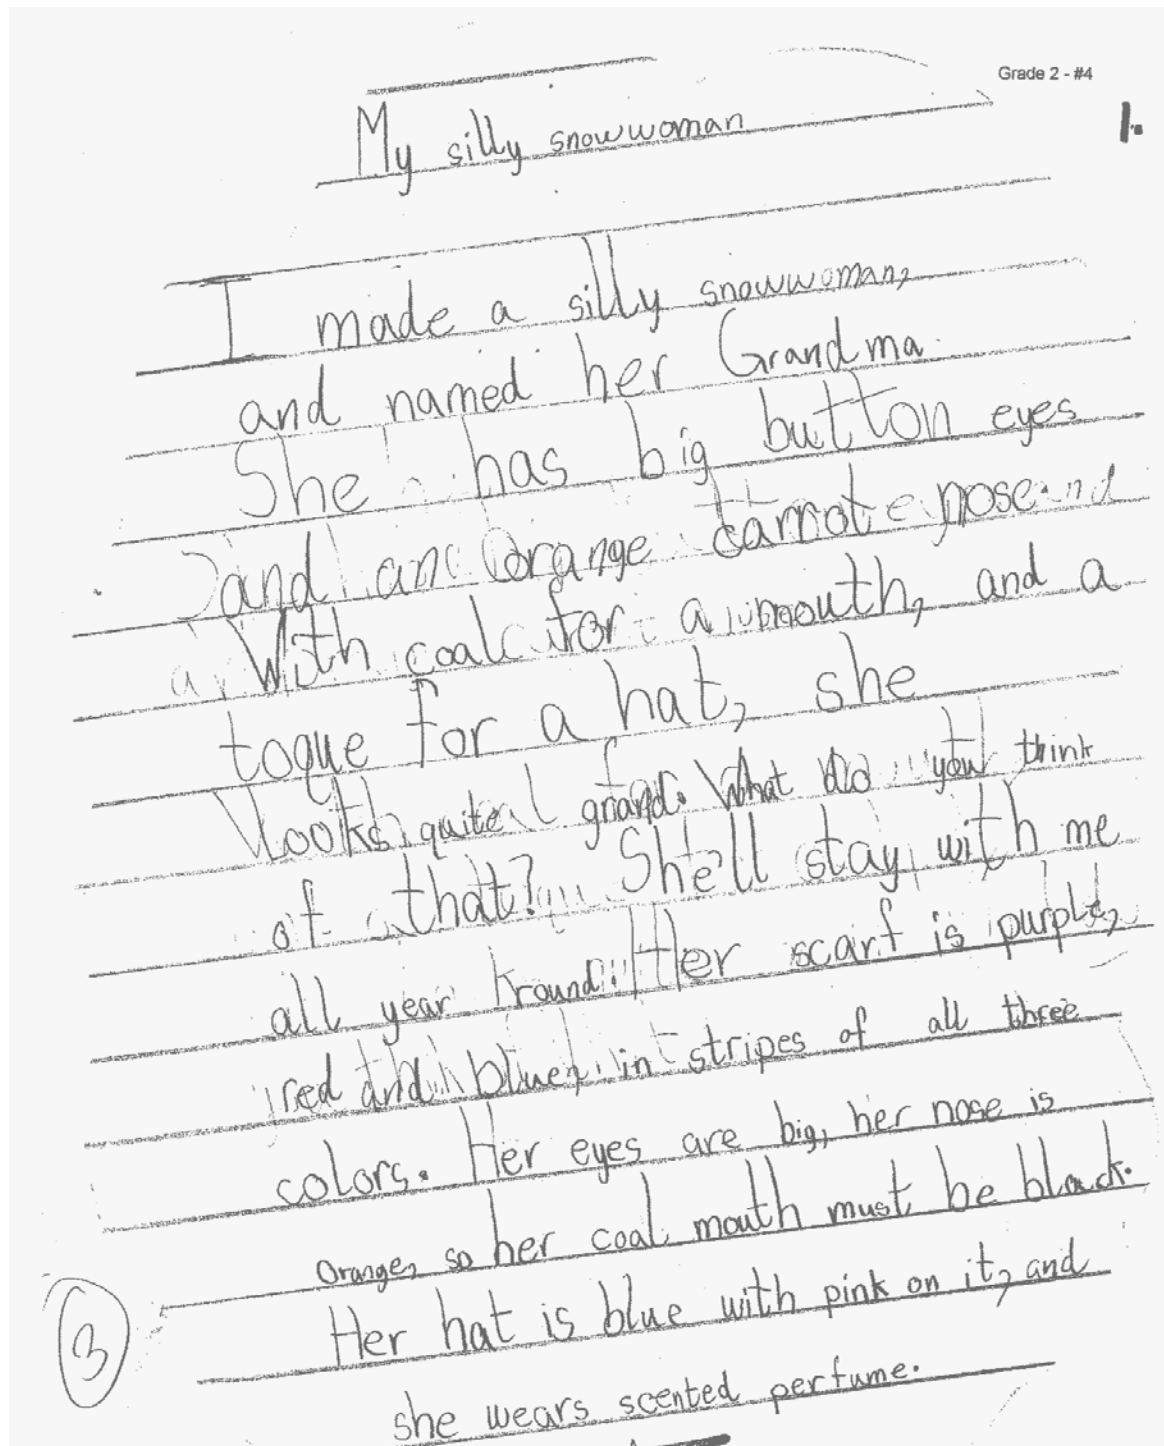 Grade 2 - #4
1.
My silly snowwoman
I made a silly snowwoman,
and named her Grandma.
She has big button eyes
and an orange carrot nose.
With coal for a mouth, and a
toque for a hat, she
looks quite grand. What do you think
of that? She'll stay with me
all year round. Her scarf is purple,
red and blue, in stripes of all three
colors. Her eyes are big, her nose is
orange, so her coal mouth must be black.
Her hat is blue with pink on it, and
she wears scented perfume.
3